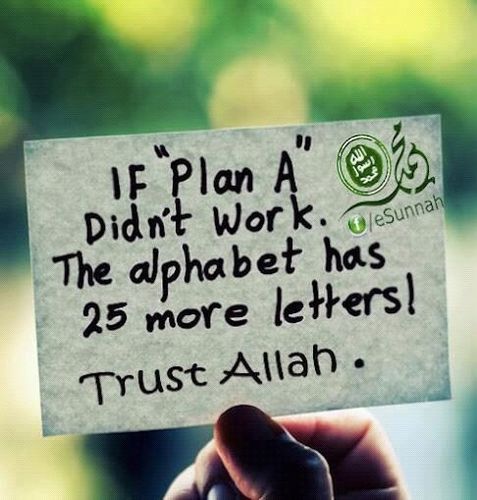 IF "Plan A"
Didn't Work.
The alphabet has
25 more letters!
Trust Allah .
الله
رسول
محمد
محمد
f /eSunnah